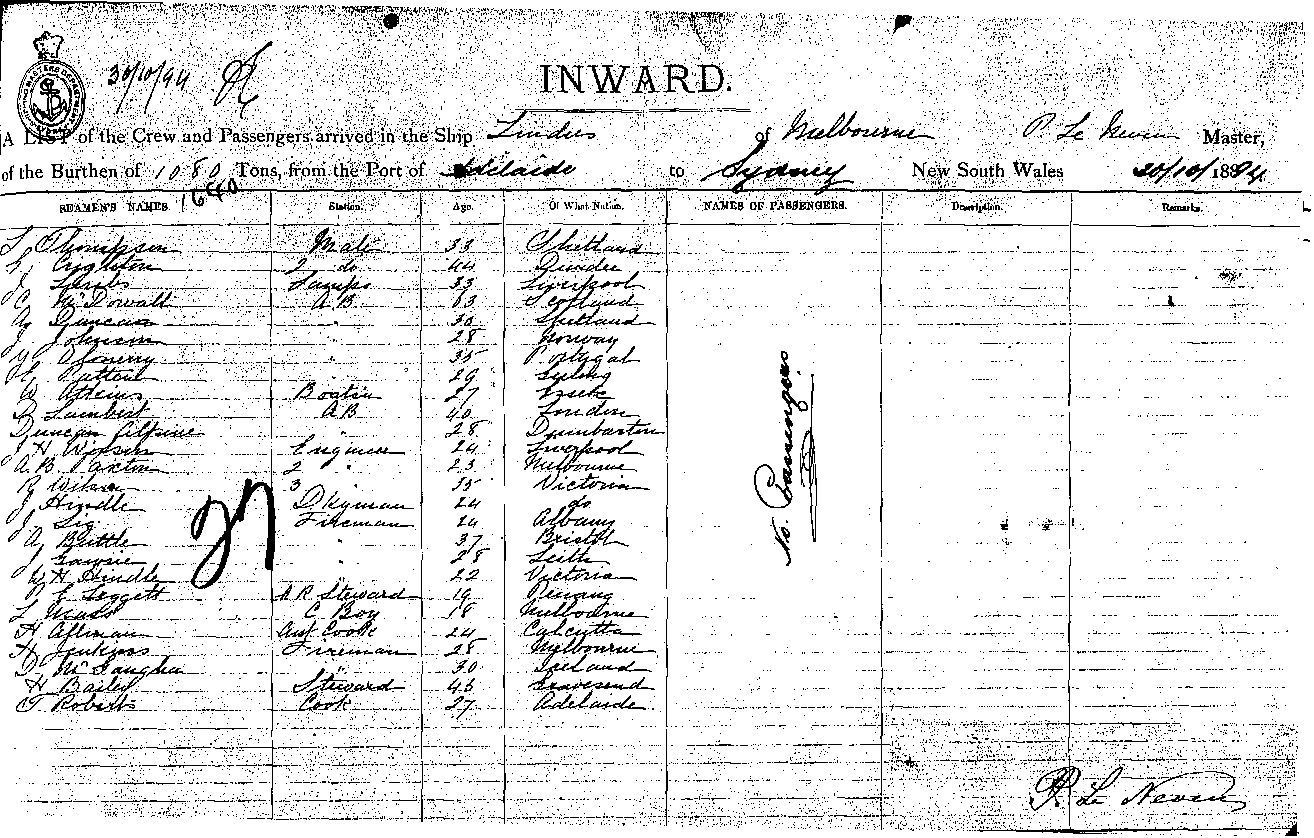 30/10/94
INWARD.
A LIST of the Crew and Passengers arrived in the Ship Lindus of Melbourne P. Le Neven Master,
of the Burthen of 1080 Tons, from the Port of Adelaide to Sydney New South Wales 30/10/1894
1680
SEAMEN'S NAMES. Station. Age. Of What Nation. NAMES OF PASSENGERS. Description. Remarks.
Thompson Mate 33 Shetland
Crighton 2 do 44 Dundee
J Jacobs Lamps 33 Liverpool
C McDowall A B 63 Scotland
Ay Duncan " 30 Shetland
J Johnson " 28 Norway
35 Portygal
29
W Attems Boatsn 27
Lambert A B 40 London
Duncan Gilpine " 28 Dumbarton
J H Engineer 24 Liverpool
A. B. Paxton 2 " 23 Melbourne
R Wilson 3 35 Victoria
J Hindle D. Kyman 24 do
J Fireman 24 Albany
A Brittle " 37 Bristol
J " 28 Leith
W H Hindle 22 Victoria
E Leggett A R Steward 19 Penang
L Moss C Boy 18 Melbourne
H Allman Ast Cook 24 Calcutta
H Jenkins Fireman 28 Melbourne
D McGaughn 30 Ireland
H Bailey Steward 46 Gravesend
T Roberts Cook 27 Adelaide
27
No. Passengers
P. Le Neven